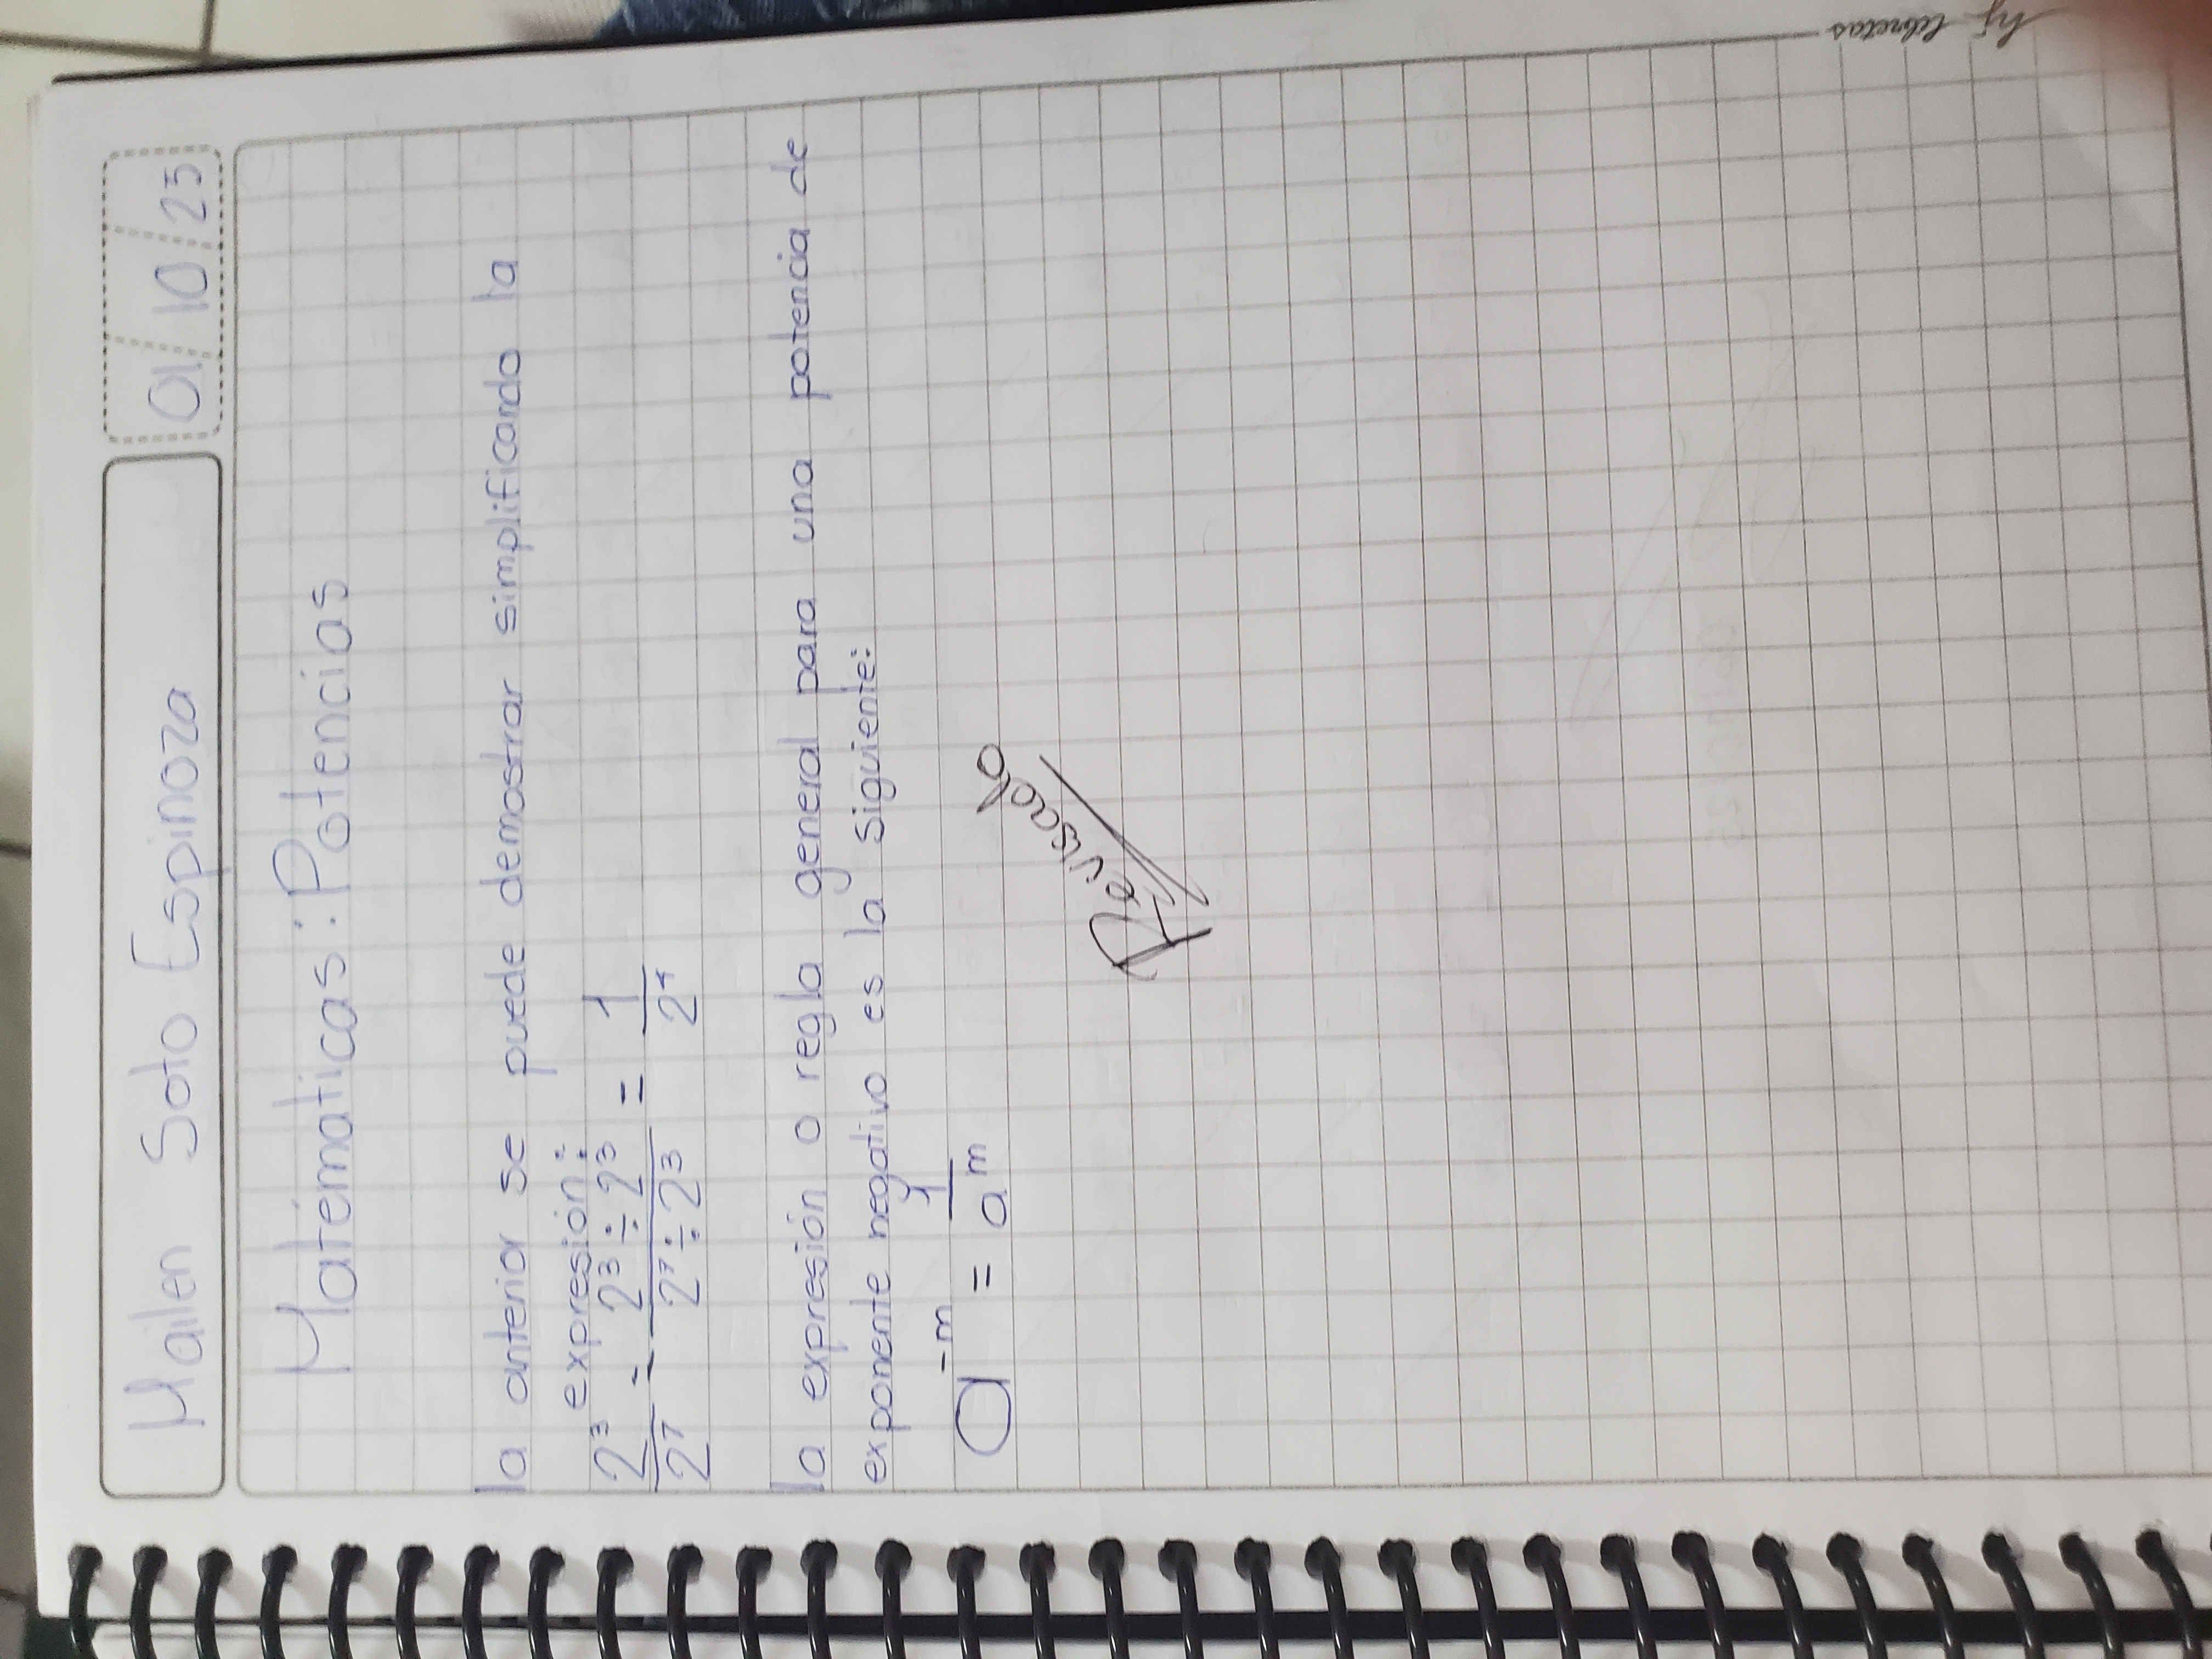 Mailen Soto Espinoza 01/10/25
Matématicas: Potencias
la anterior se puede demostrar simplificando la
expresión:
2³/2⁷ = 2³÷2³/2⁷÷2³ = 1/2⁴
la expresión o regla general para una potencia de
exponente negativo es la siguiente:
a⁻ᵐ = 1/aᵐ
Revisado